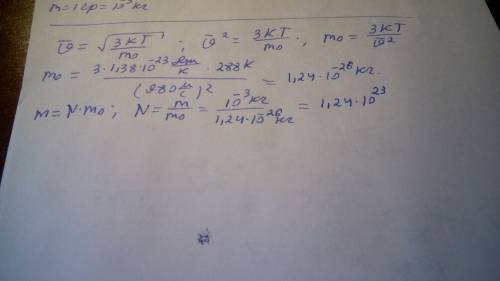 m = 1 гр = 10⁻³ кг
v̄ = √(3кТ/m₀) ; v̄² = 3кТ/m₀ ; m₀ = 3кТ/v̄²
m₀ = 3·1,38·10⁻²³ Дж/К · 288К / (980 м/с)² = 1,24·10⁻²⁶ кг.
m = N·m₀ ; N = m/m₀ = 10⁻³ кг / 1,24·10⁻²⁶ кг = 1,24·10²³